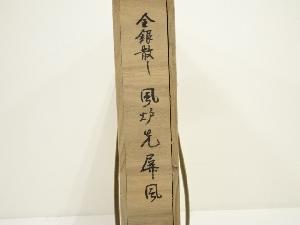 金銀散し 風炉先屏風